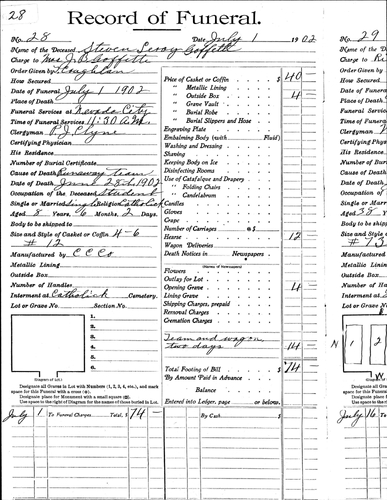 28
Record of Funeral.
No. 28 Date July 1 1902
Name of the Deceased Steven Leroy Goffett
Charge to Mrs J B Goffette
Order Given by
How Secured
Date of Funeral July 1 1902
Place of Death
Funeral Services at Nevada City
Time of Funeral Services 11:30 A.M.
Clergyman P. J. Clyne
Certifying Physician
His Residence
Number of Burial Certificate
Cause of Death Runaway Team
Date of Death June 28th 1902
Occupation of the Deceased Student
Single or Married Single Religion Catholick
Aged 8 Years, 6 Months, 2 Days
Body to be shipped to
Size and Style of Casket or Coffin 4-6
# 12
Manufactured by C C Co
Metallic Lining
Outside Box
Number of Handles
Interment at Catholick Cemetery.
Lot or Grave No. Section No.
1.
2.
3.
4.
5.
6.
(Diagram of Lot.)
Designate all Graves in Lot with Numbers (1, 2, 3, 4, etc.), and mark
space for this Funeral with a cross
Designate place for Monument with a small square
Use space to the right of Diagram for the names of those buried in Lot.
Price of Casket or Coffin $ 40 —
" Metallic Lining
" Outside Box 4 —
" Grave Vault
" Burial Robe
" Burial Slippers and Hose
Engraving Plate
Embalming Body (with Fluid)
Washing and Dressing
Shaving
Keeping Body on Ice
Disinfecting Rooms
Use of Catafalque and Drapery
" Folding Chairs
" Candelabrum
Candles
Gloves
Crape
Number of Carriages @ $
Hearse 12
Wagon Deliveries
Death Notices in Newspapers
(Names of Newspapers)
Flowers
Outlay for Lot
Opening Grave 4 —
Lining Grave
Shipping Charges, prepaid
Removal Charges
Cremation Charges
Team and wagon
two days 14 —
Total Footing of Bill $ 74 —
By Amount Paid in Advance
Balance
Entered into Ledger, page or below.
July 1 To Funeral Charges Total, $ 74 — By Cash $
29
No. 29
Name of
Charge to
Order Given
How Secured
Date of
Place of
Funeral
Time of
Clergyman
Certifying
His
Number
Cause of
Date of
Occupation
Single or
Aged 38
Body to be
Size and
# 73
Manufactured
Metallic
Outside
Number
Interment
Lot or
N
1
2
W
Designate
space
Designate
Use
July 16